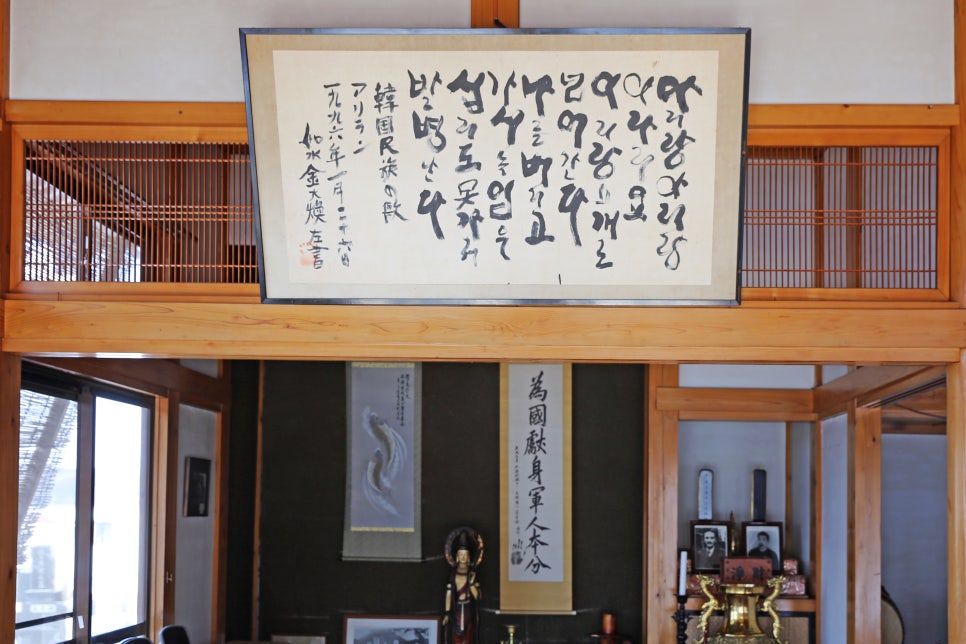 아리랑 아리랑
아라리요
아리랑 고개로
넘어간다
나를 버리고
가시는 임은
십리도 못가서
발병난다
韓国民族の歌
アリラン
一九九六年一月二十六日
如水 金大煥 左書
為國獻身軍人本分